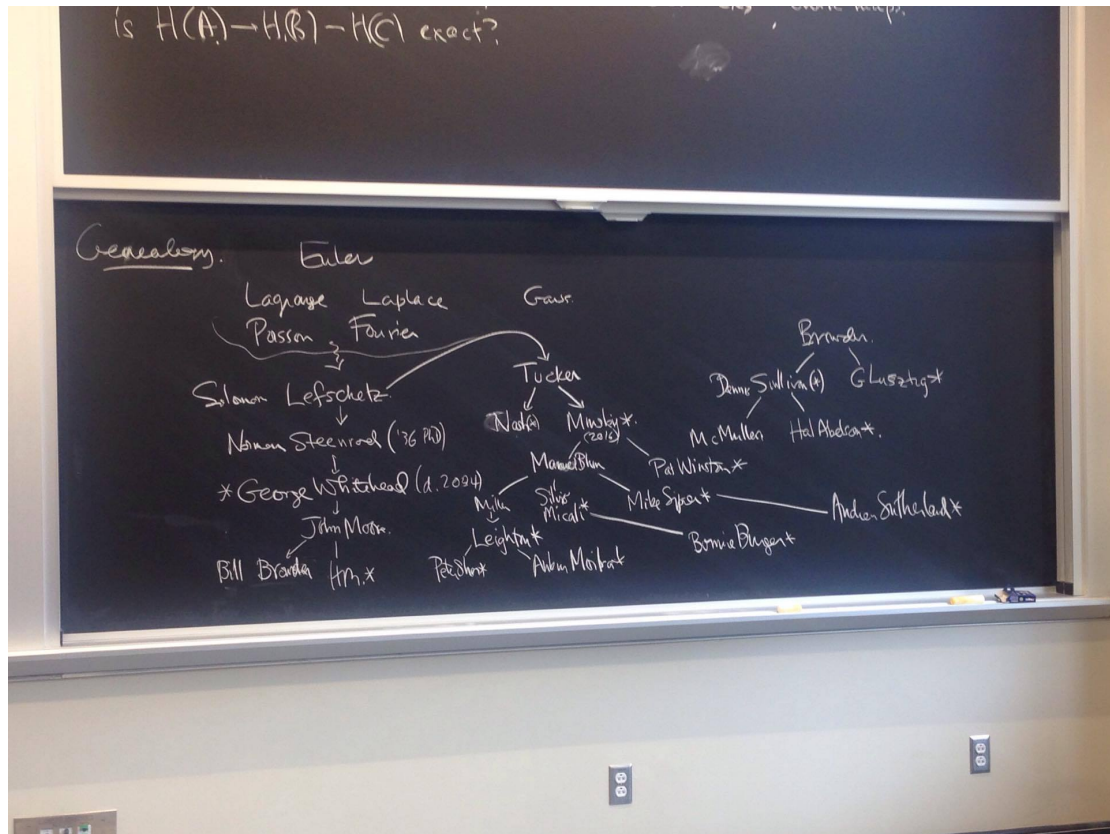 is H(A.)→H(B.)–H(C.) exact?
maps?
Genealogy.
Euler
Lagrange Laplace Gauss
Poisson Fourier
Solomon Lefschetz
Norman Steenrod ('36 PhD)
*George Whitehead (d. 2004)
John Moore.
Bill Browder HM.*
Tucker
Nash(*) Minsky*.
(2016)
Manuel Blum Pat Winston*
Miller Silvio Micali* Mike Sipser* Andrew Sutherland*
Leighton* Bonnie Burger*
Peter Shor* Ankur Moitra*
Browder.
Dennis Sullivan(*) G Lusztig*
McMullen Hal Abelson*.